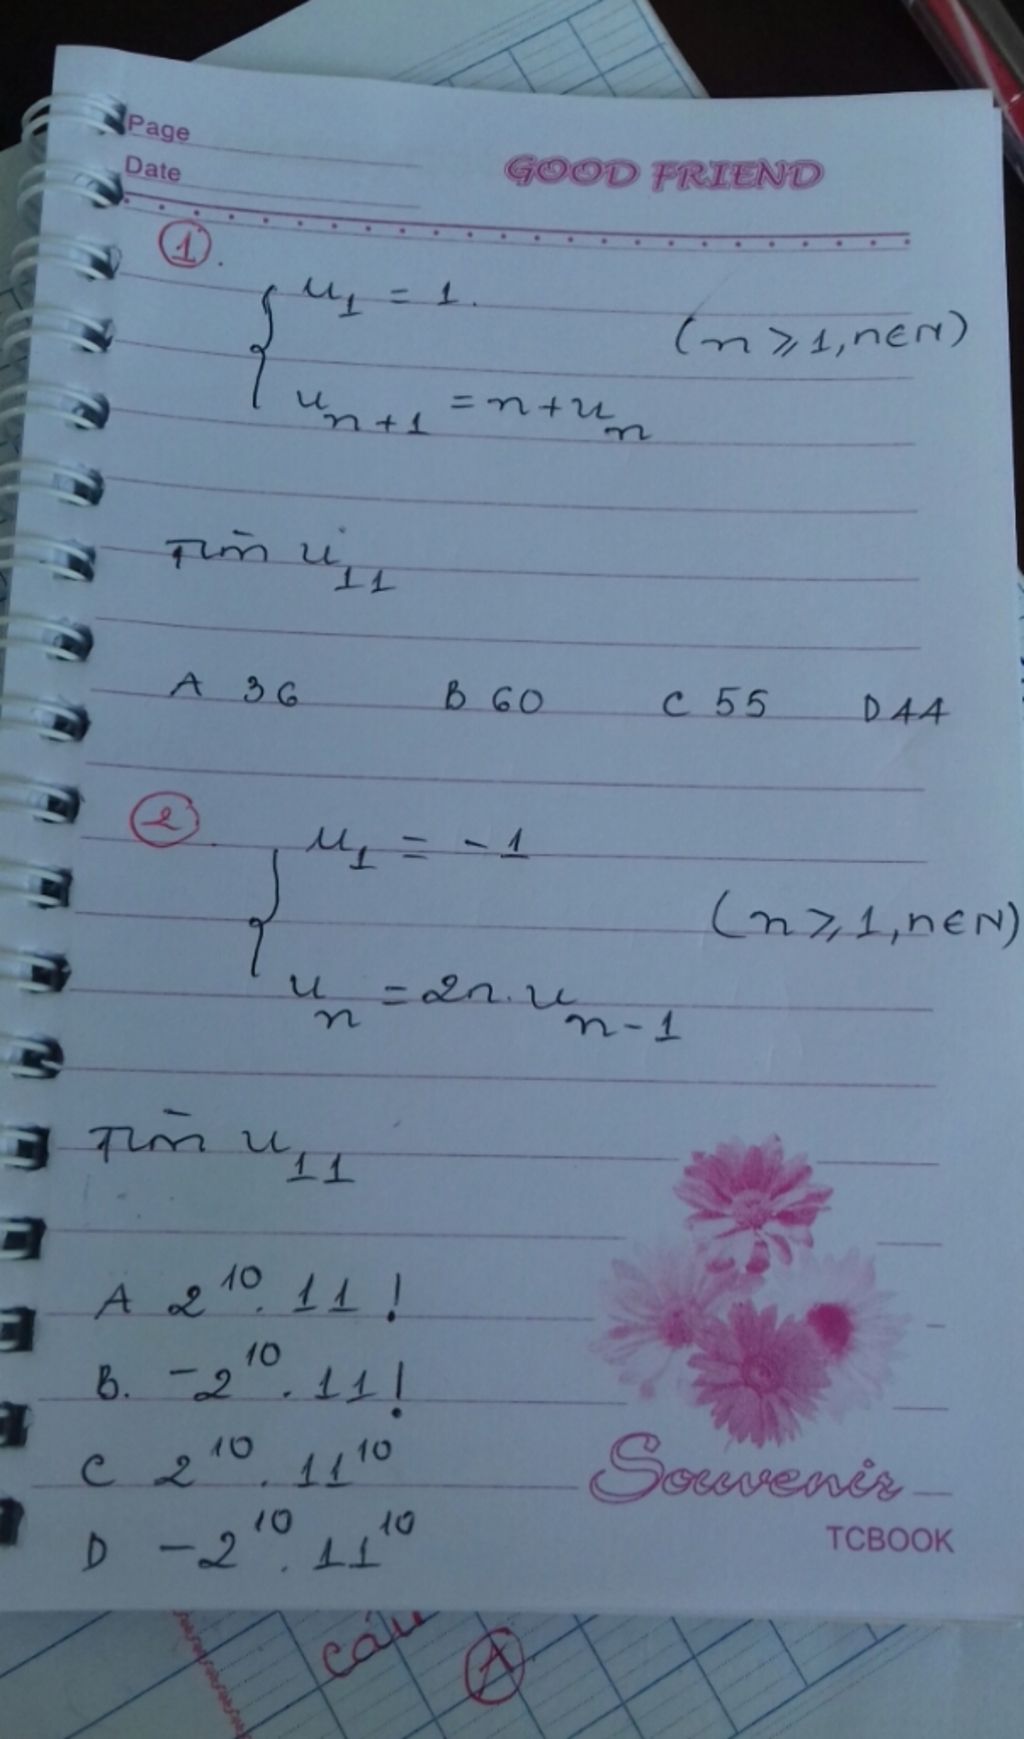 Page
Date
GOOD FRIEND
①.
u₁ = 1.
(n ⩾ 1, n ∈ N)
uₙ₊₁ = n + uₙ
Tìm u₁₁
A 36 B 60 C 55 D 44
②.
u₁ = -1
(n ⩾ 1, n ∈ N)
uₙ = 2n. uₙ₋₁
Tìm u₁₁
A 2¹⁰. 11!
B. -2¹⁰. 11!
C 2¹⁰. 11¹⁰
D -2¹⁰. 11¹⁰
Souvenir
TCBOOK
câu
A